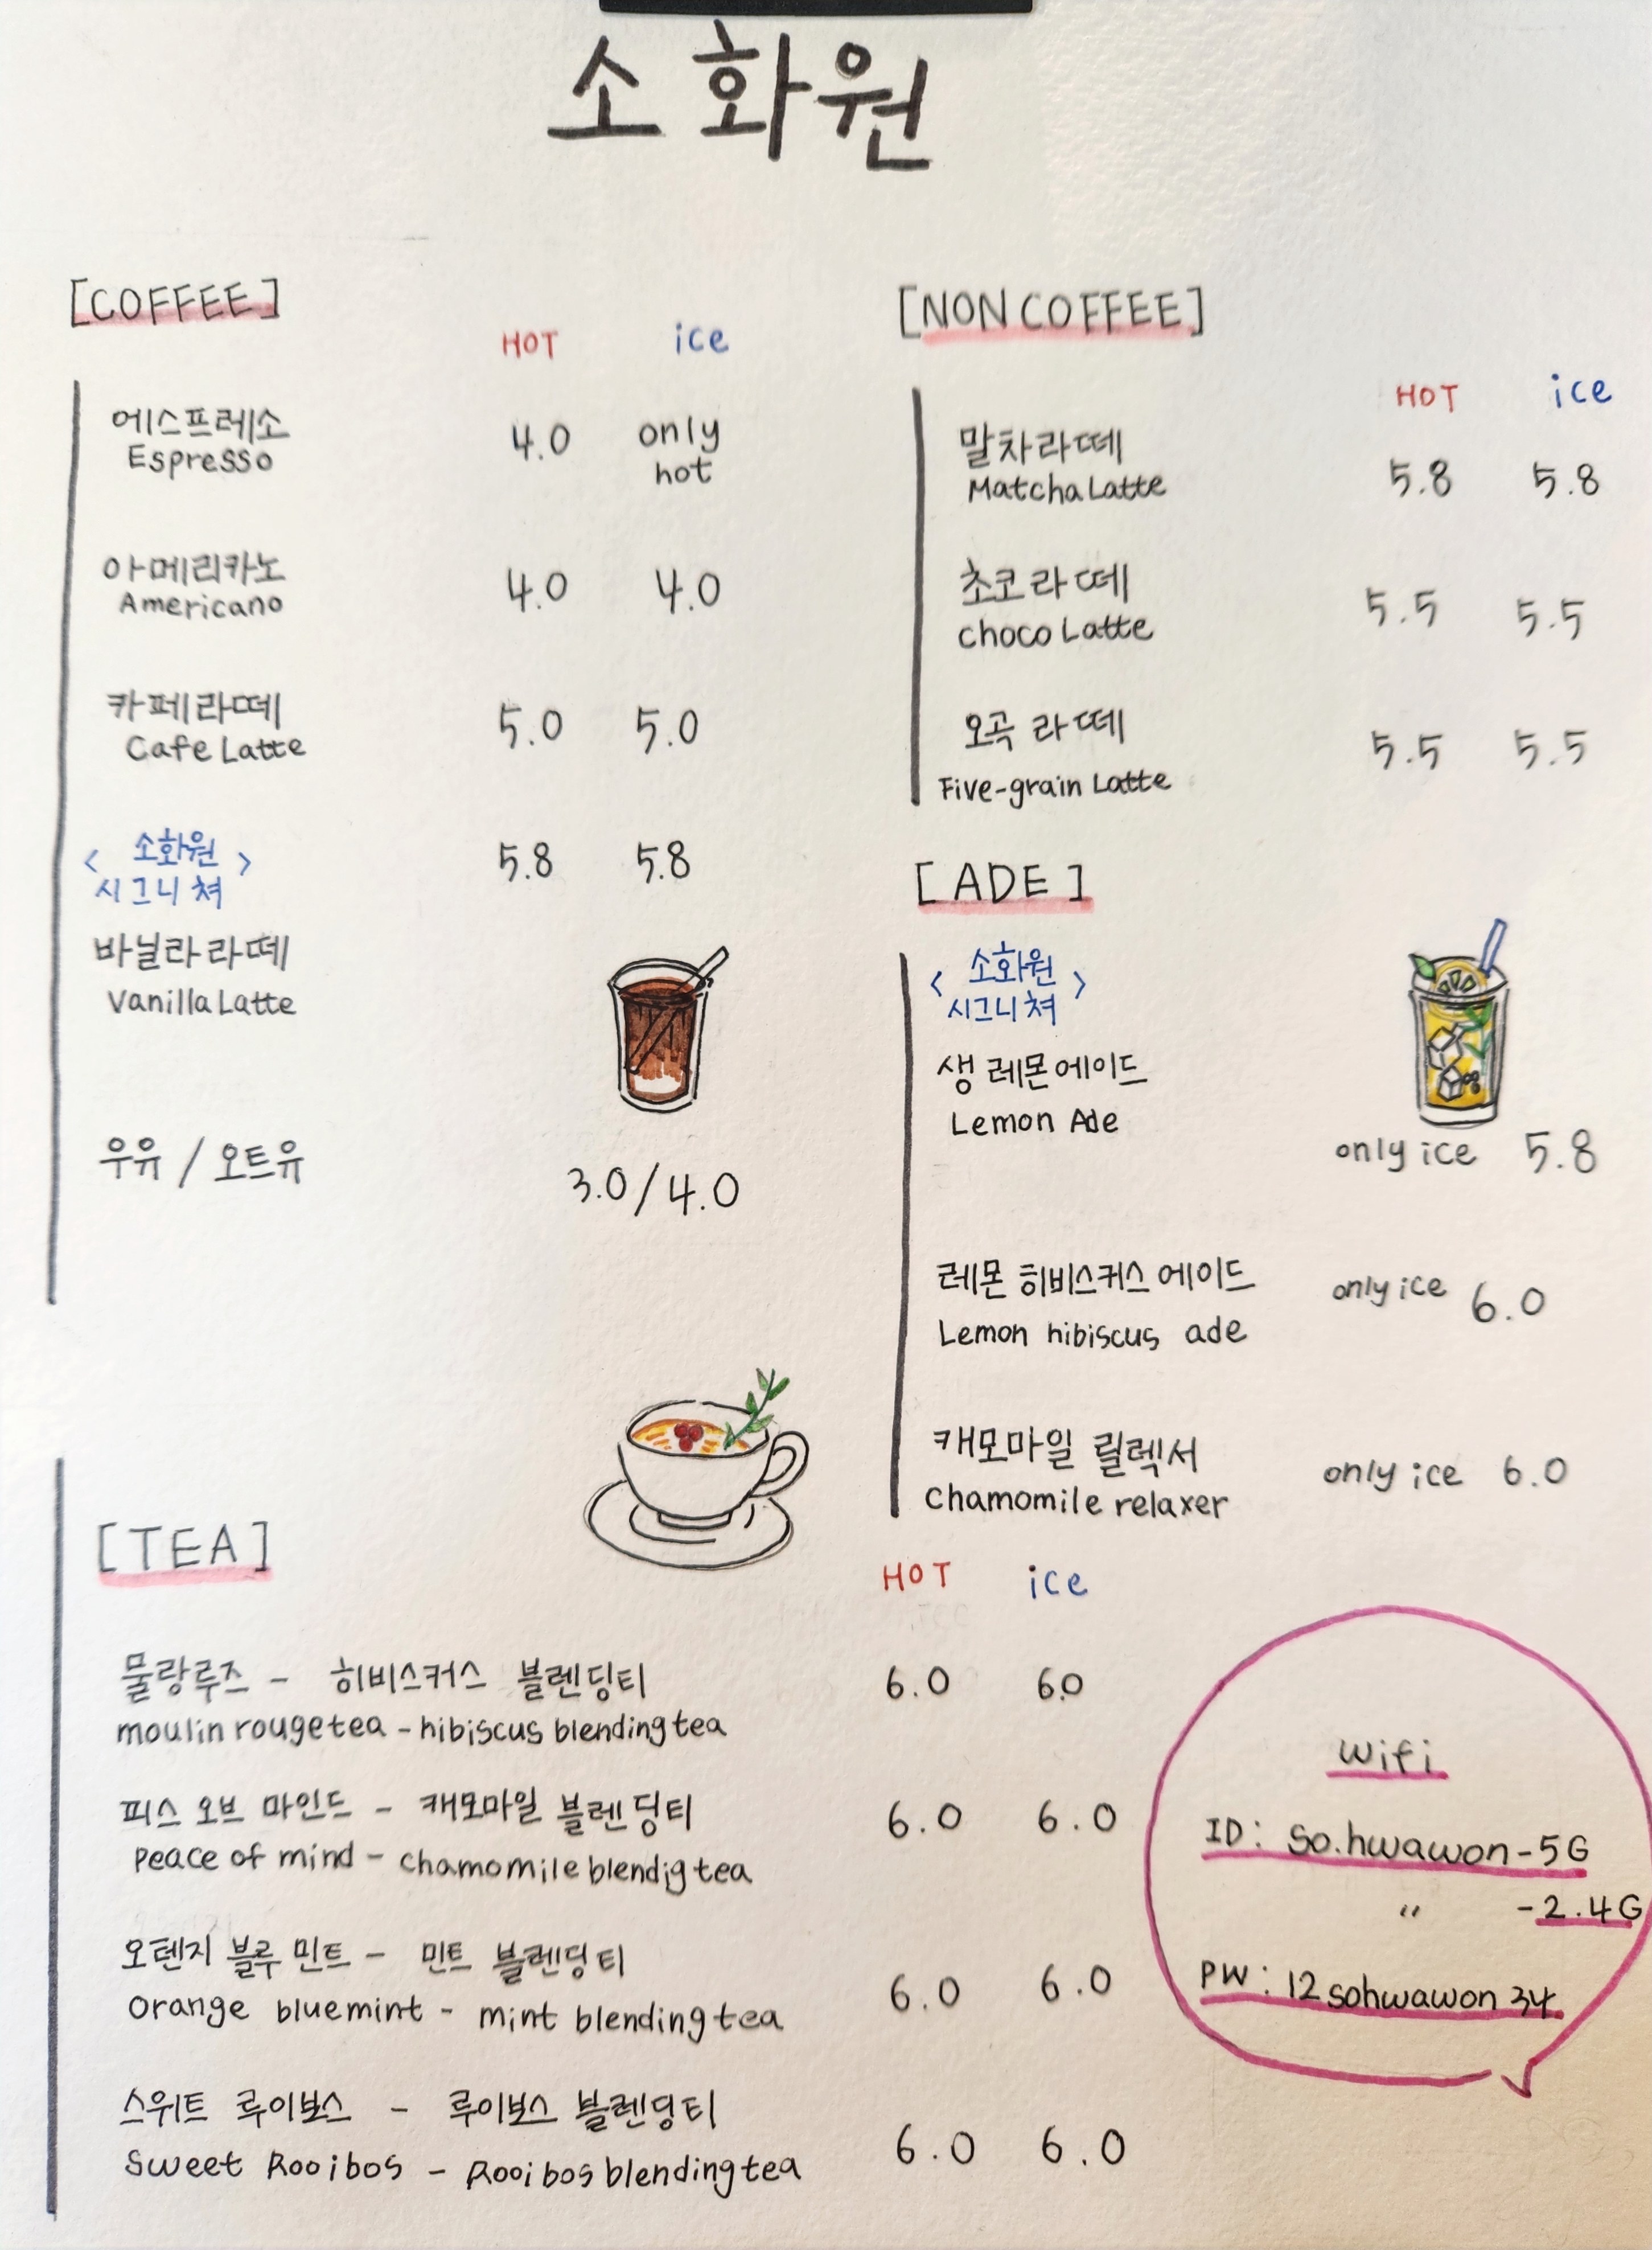 소화원
[COFFEE]
HOT ice
에스프레소
Espresso
4.0 only hot
아메리카노
Americano
4.0 4.0
카페라떼
Cafe Latte
5.0 5.0
< 소화원
시그니쳐 >
5.8 5.8
바닐라라떼
Vanilla Latte
우유 / 오트유
3.0/4.0
[NON COFFEE]
HOT ice
말차라떼
Matcha Latte
5.8 5.8
초코라떼
choco Latte
5.5 5.5
오곡 라떼
Five-grain Latte
5.5 5.5
[ADE]
< 소화원
시그니쳐 >
생 레몬에이드
Lemon Ade
only ice 5.8
레몬 히비스커스 에이드
Lemon hibiscus ade
only ice 6.0
캐모마일 릴렉서
Chamomile relaxer
only ice 6.0
[TEA]
HOT ice
물랑루즈 - 히비스커스 블렌딩티
moulin rouge tea - hibiscus blending tea
6.0 6.0
피스 오브 마인드 - 캐모마일 블렌딩티
peace of mind - chamomile blendig tea
6.0 6.0
오렌지 블루 민트 - 민트 블렌딩티
orange bluemint - mint blending tea
6.0 6.0
스위트 루이보스 - 루이보스 블렌딩티
Sweet Rooibos - Rooibos blending tea
6.0 6.0
Wifi
ID: so.hwawon-5G
" -2.4G
PW: 12sohwawon34